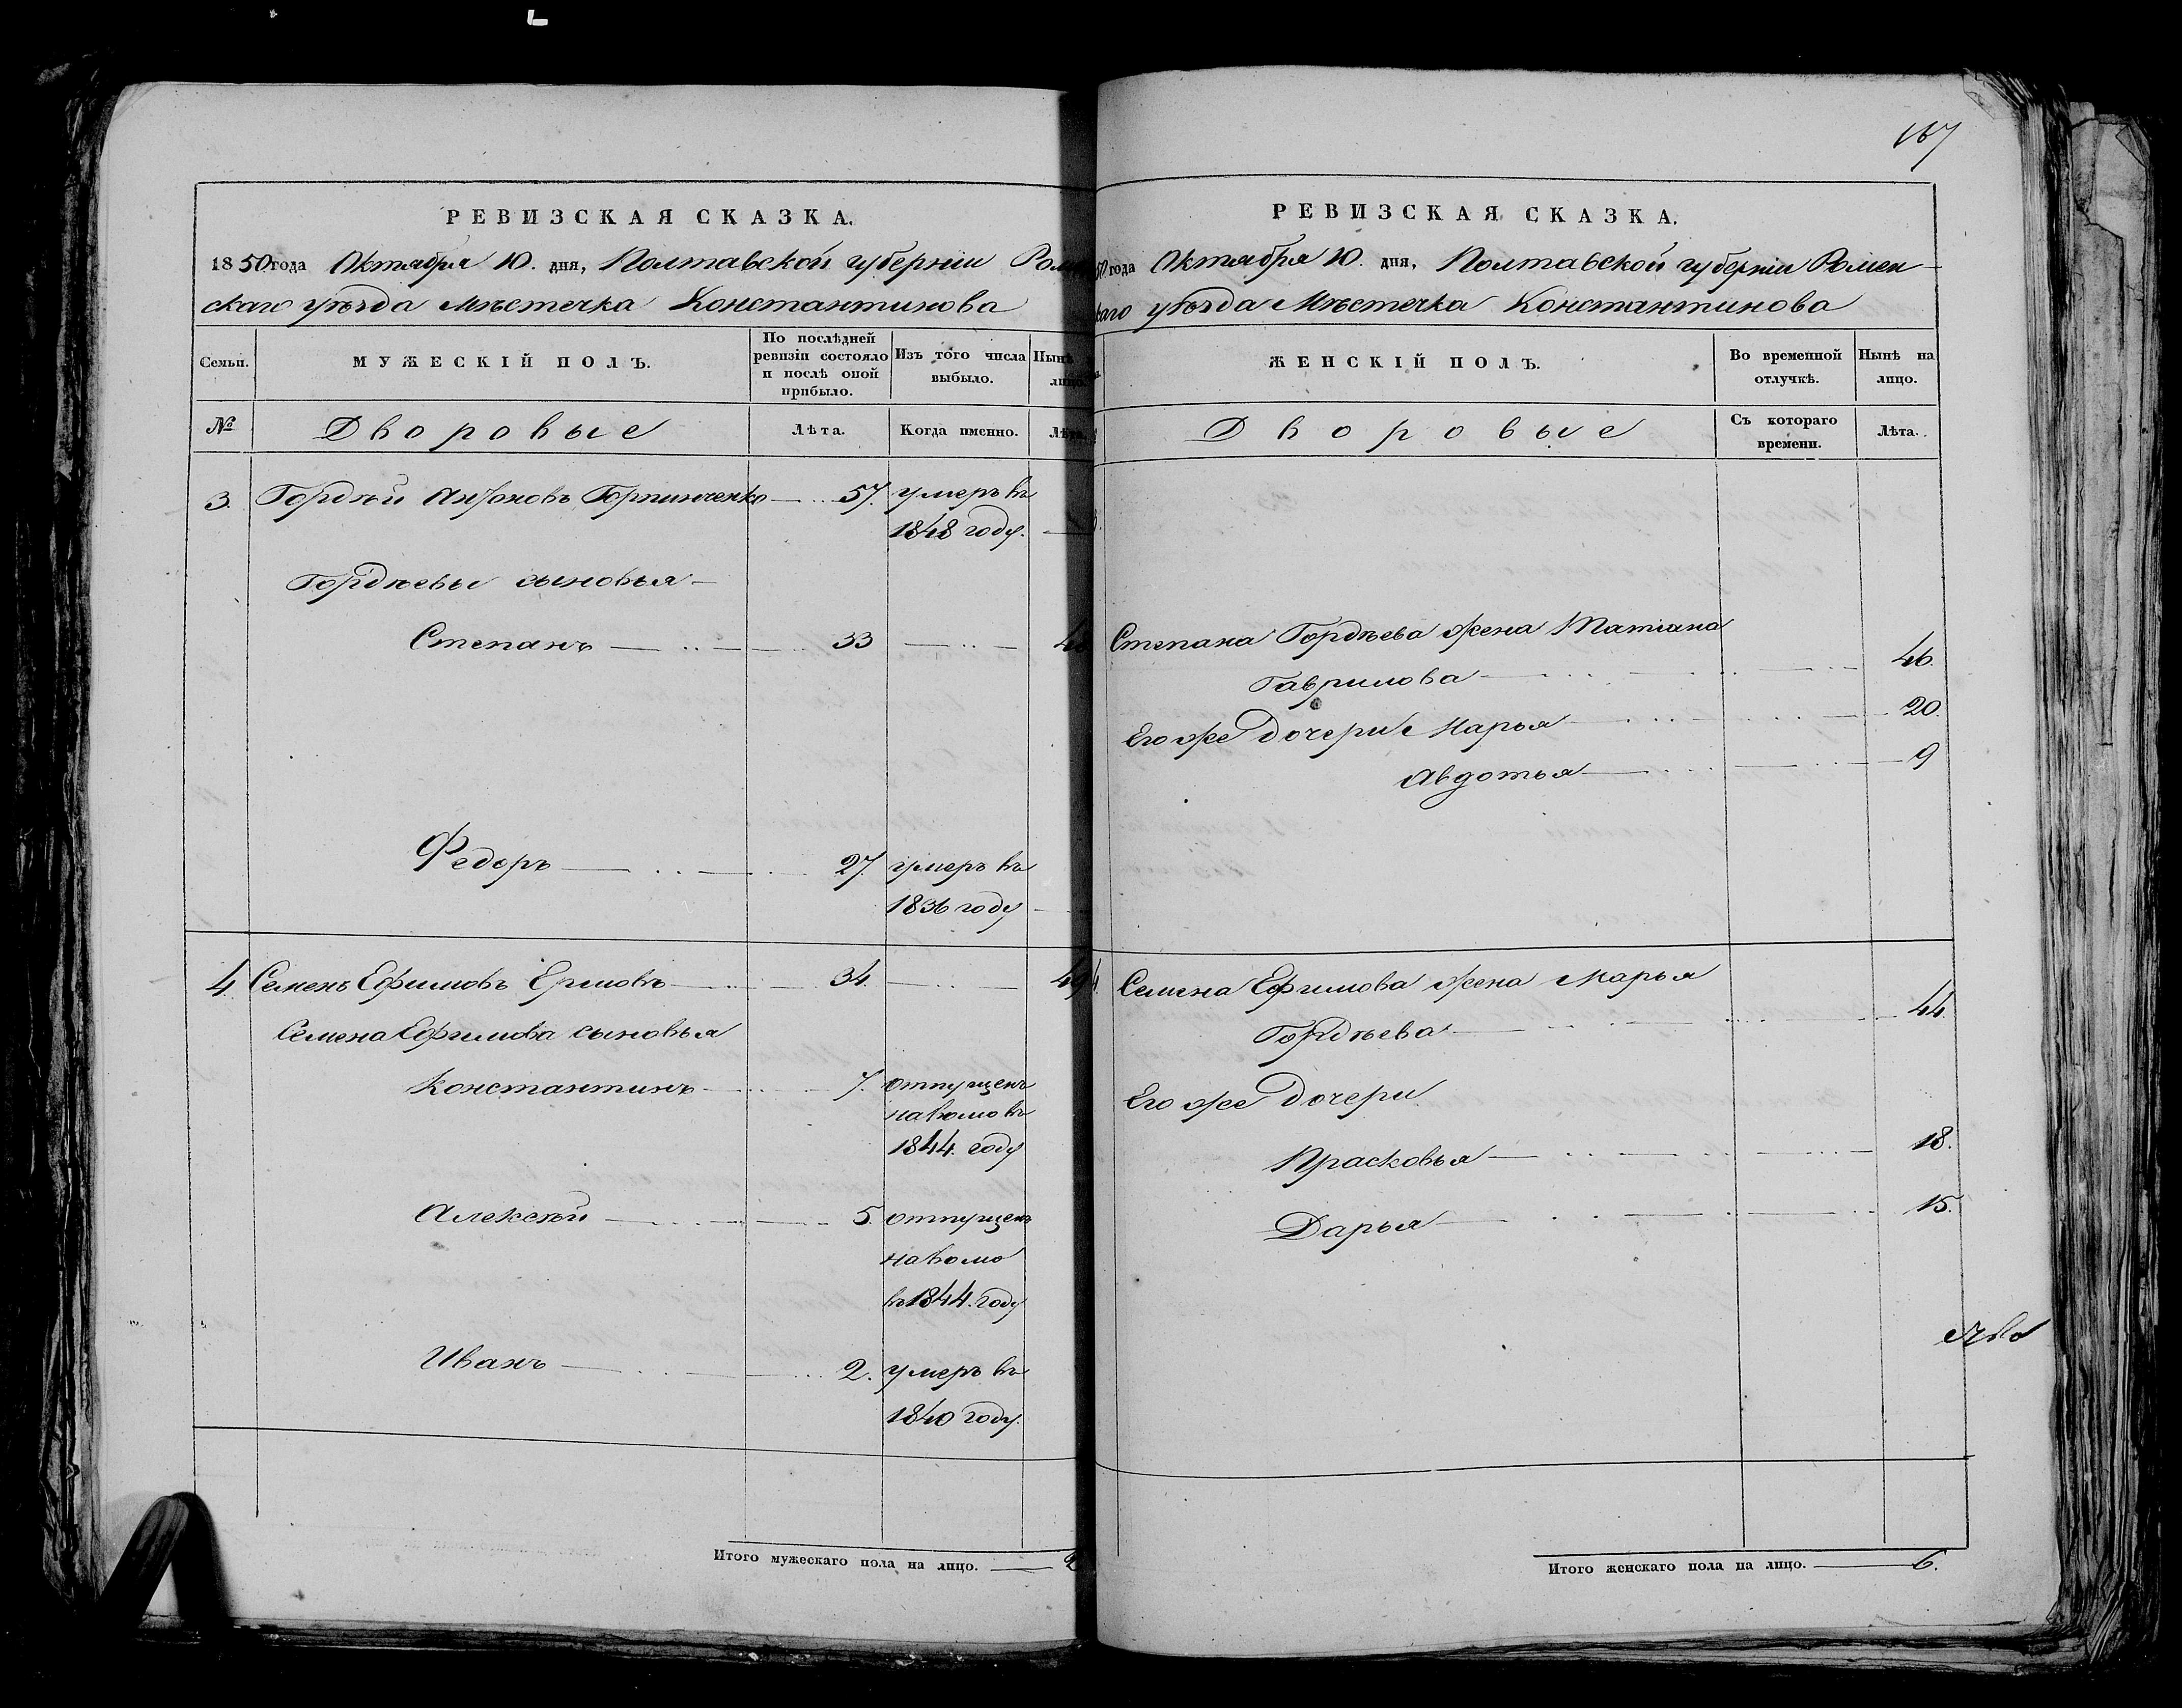 РЕВИЗСКАЯ СКАЗКА.
1850 года Октября 10. дня, Полтавской губернии Ромен
скаго уѣзда Мѣстечка Константинова
Семьи.
МУЖЕСКІЙ ПОЛЪ.
По послѣдней ревизіи состояло и послѣ оной прибыло.
Изъ того числа выбыло.
Нынѣ лицо.
№
Дворовые
Лѣта.
Когда именно.
Лѣта.
3. Гордѣй Антоновъ Горпинченко 57. умеръ въ
1848 году.
Гордѣевы сыновья
Степанъ 33
Федоръ 27. умеръ въ
1836 году
4. Семенъ Ефимовъ Ермовъ 34. 49
Семена Ефимова сыновья
Константинъ 7. отпущенъ
наволю въ
1844. году
Алексѣй 5. отпущенъ
наволю
въ 1844. году
Иванъ 2. умеръ въ
1840 году.
Итого мужескаго пола на лицо. 2
167
РЕВИЗСКАЯ СКАЗКА.
50 года Октября 10. дня, Полтавской губерніи Ромен-
каго уѣзда Мѣстечка Константинова
ЖЕНСКІЙ ПОЛЪ.
Во временной отлучкѣ.
Нынѣ на лицо.
Дворовые
Съ котораго времени.
Лѣта.
Степана Гордѣева жена Татіана
Гаврилова 46.
Его же дочери Марья 20.
Авдотья 9
4. Семена Ефимова жена Марья
Гордѣева 44.
Его же дочери
Прасковья 18.
Дарья 15.
Итого женскаго пола на лицо. 6.